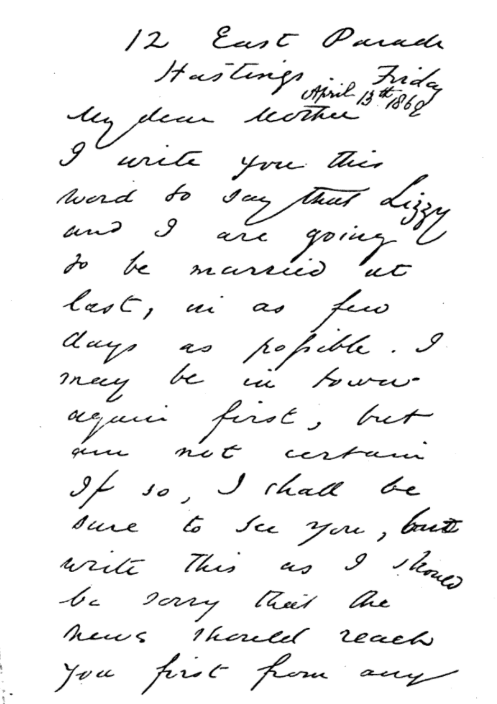 12 East Parade
Hastings Friday
April 13th 1860
My dear Mother
I write you this
word to say that Lizzy
and I are going
to be married at
last, in as few
days as possible. I
may be in town
again first, but
am not certain
If so, I shall be
sure to see you, but
write this as I should
be sorry that the
news should reach
you first from any